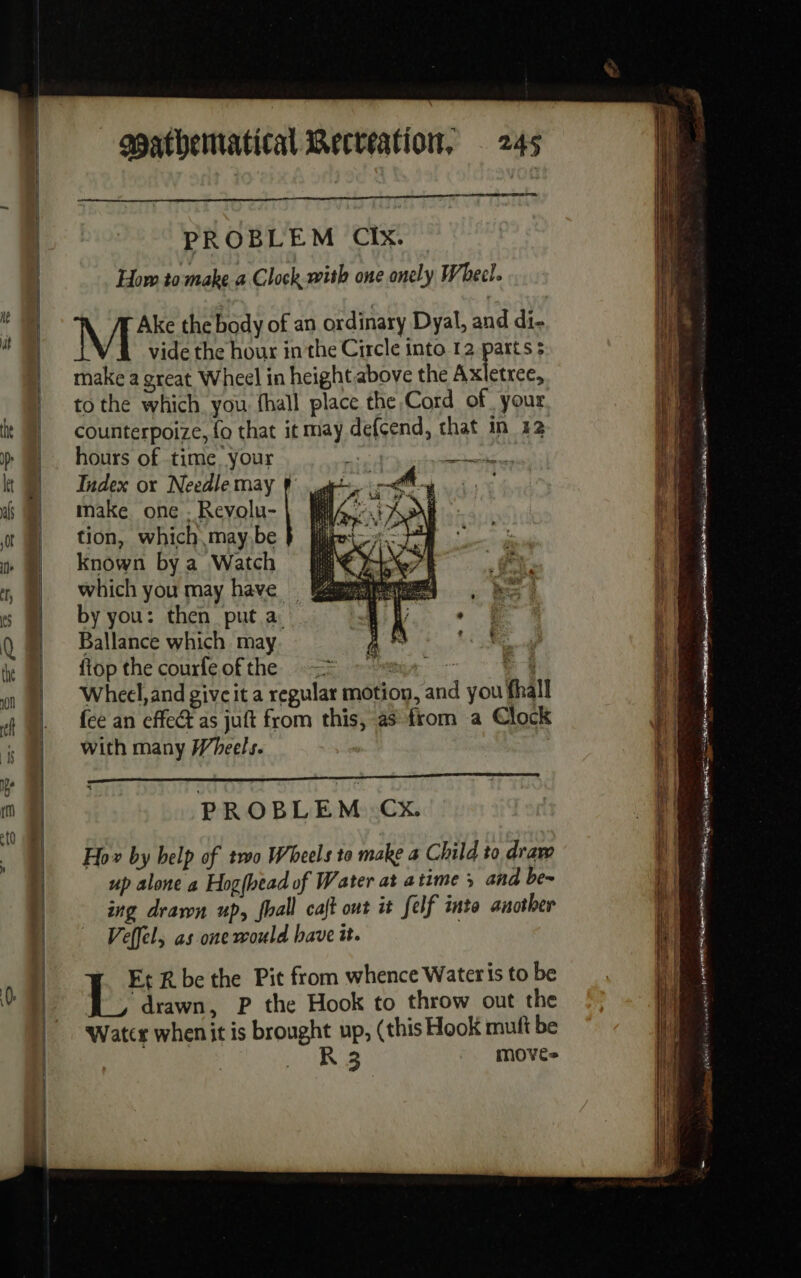 Mathematical Recreation. 245
PROBLEM CIX.
How to make a Clock with one onely Wheel.
MAke the body of an ordinary Dyal, and di-
vide the hour in the Circle into 12 parts:
make a great Wheel in height above the Axletree,
to the which you ſhall place the Cord of your
counterpoize, ſo that it may deſcend, that in 12
hours of time your
Index or Needle may
make one Revolu-
tion, which may be
known by a Watch
which you may have
by you: then put a
Ballance which may
ſtop the courſe of the
Wheel, and give it a regular motion, and you ſhall
ſee an effect as juſt from this, as from a Clock
with many Wheels.
PROBLEM CX.
How by help of two Wheels to make a Child to draw
up alone a Hogſhead of Water at a time; and be-
ing drawn up, ſhall caſt out it ſelf into another
Veſſel, as one would have it.
LEt R be the Pit from whence Water is to be
drawn, P the Hook to throw out the
Water when it is brought up, (this Hook muſt be
R 3 move-